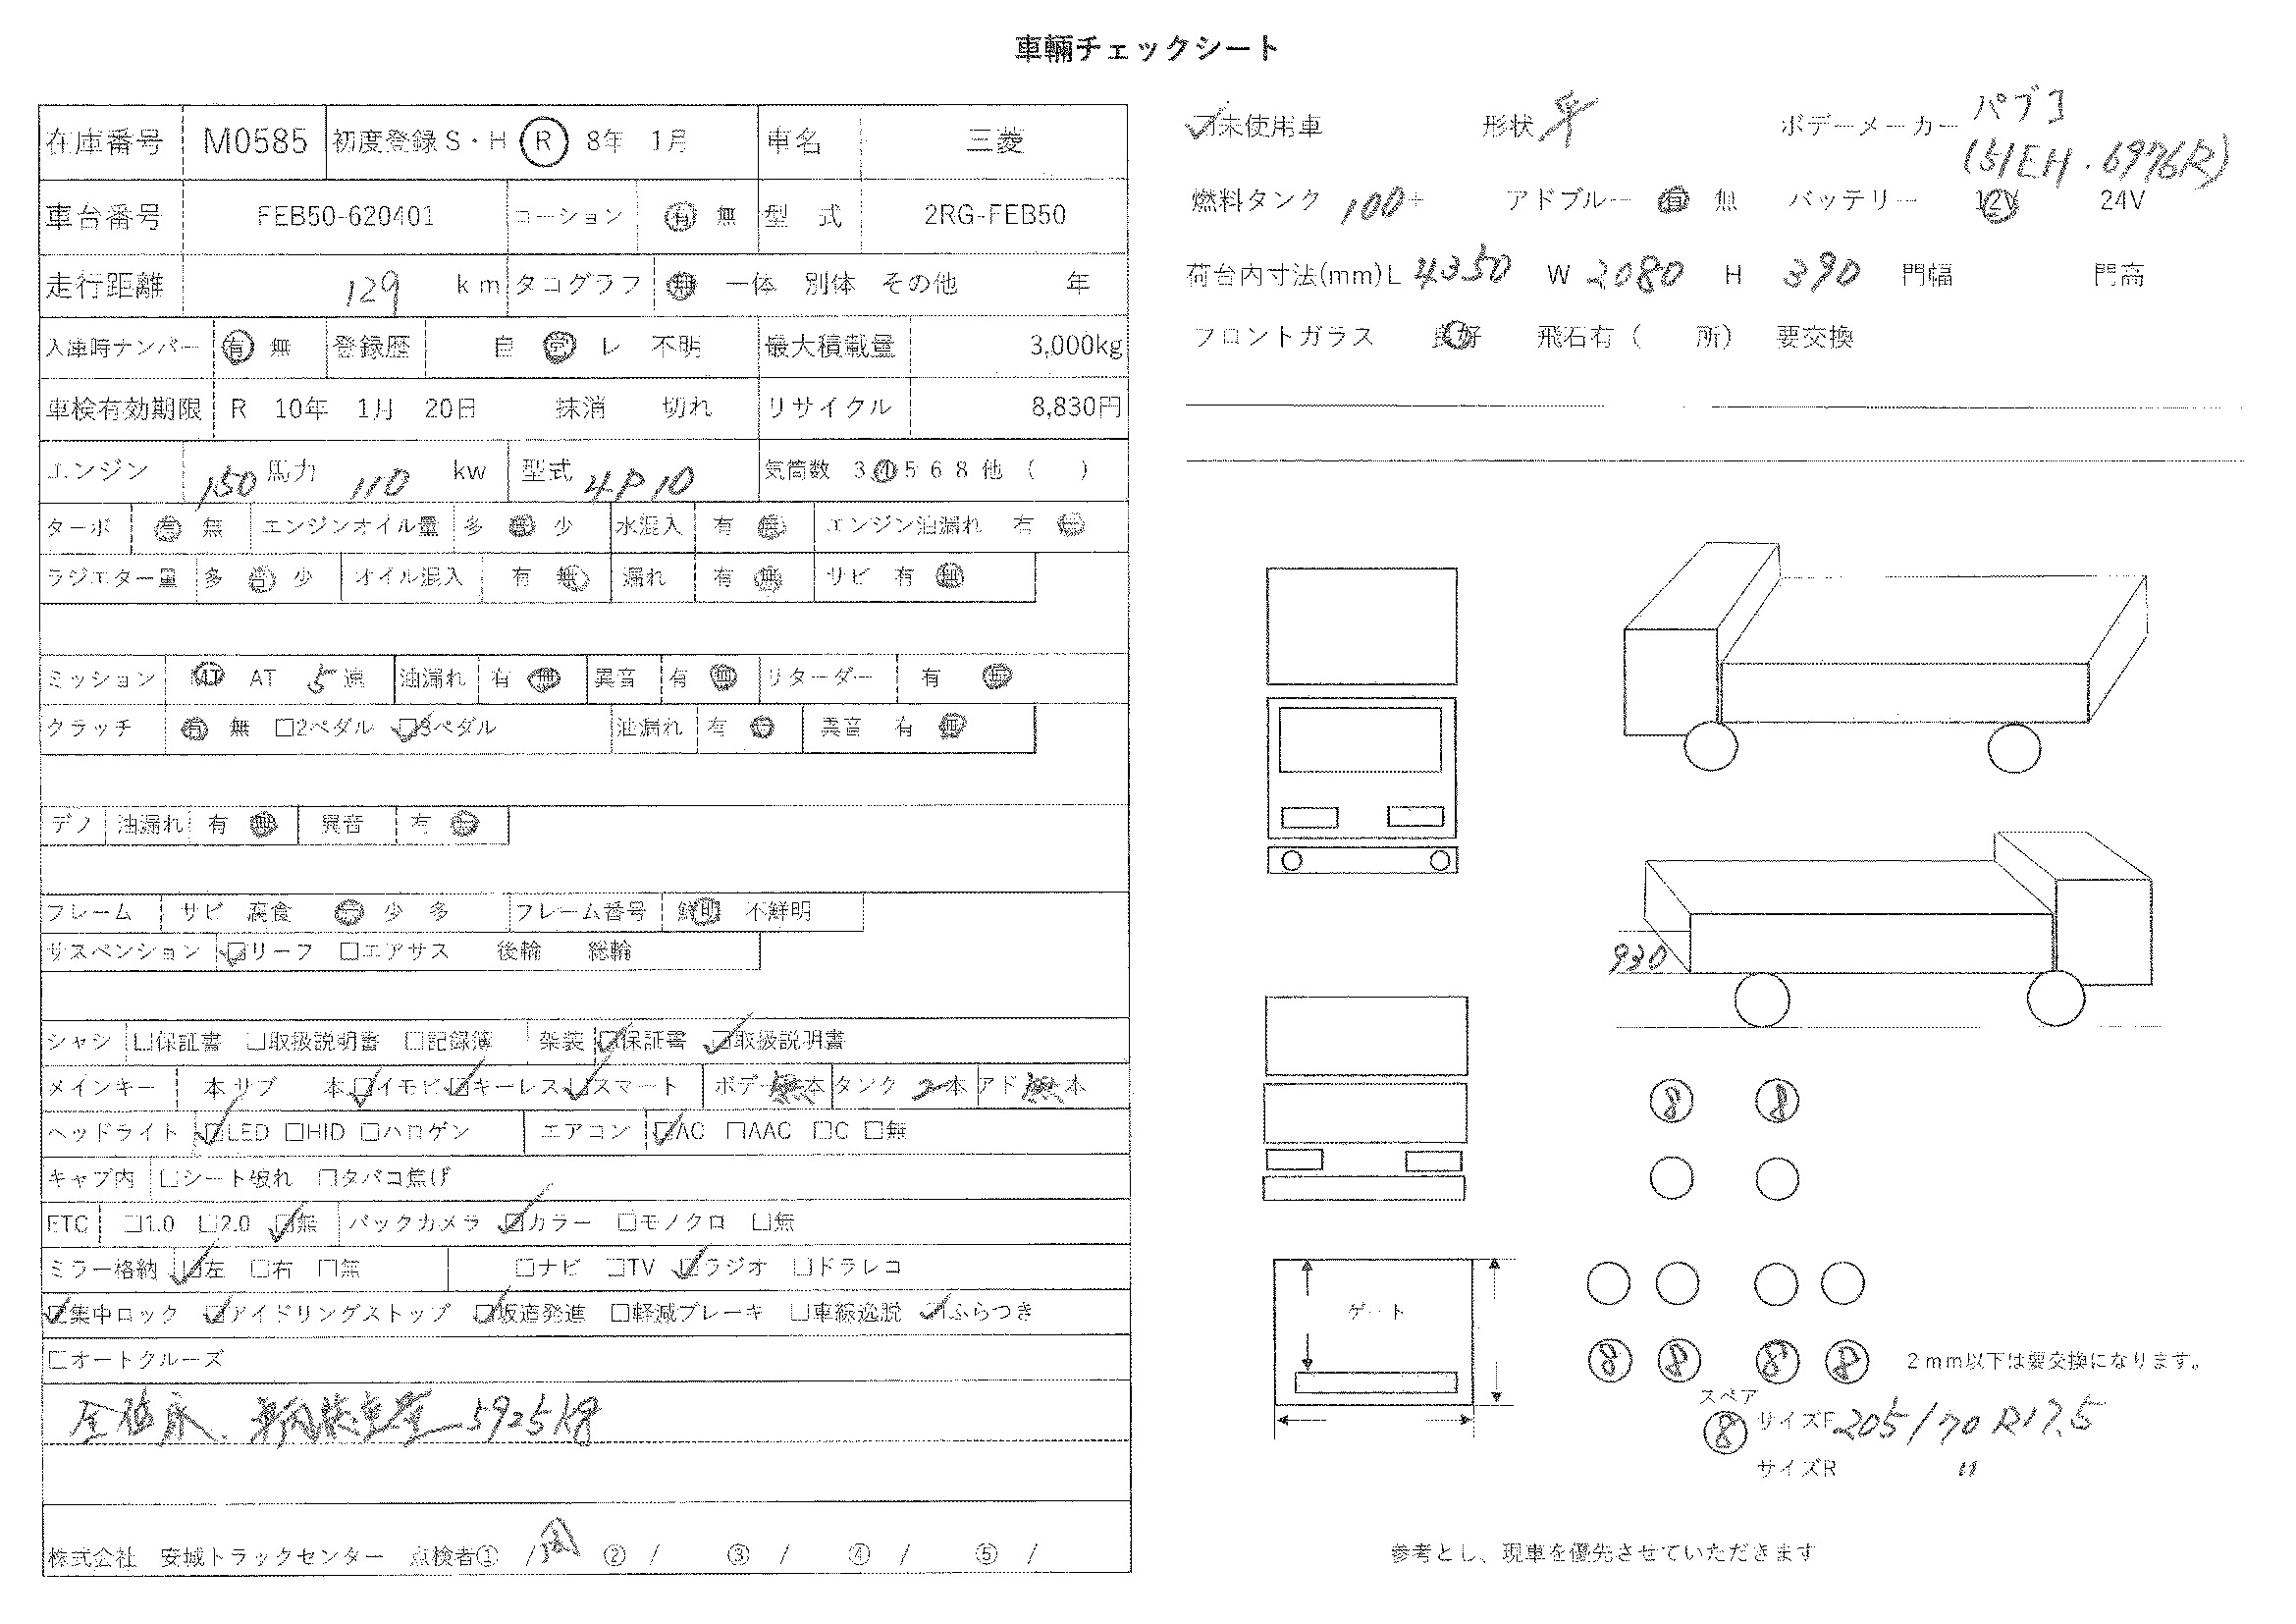 車輛チェックシート
在庫番号 M0585 初度登録 S・H R 8年 1月 車名 三菱
車台番号 FEB50-620401 コーション 有 無 型 式 2RG-FEB50
走行距離 129 km タコグラフ 無 一体 別体 その他 年
入庫時ナンバー 有 無 登録歴 自 レ 不明 最大積載量 3,000kg
車検有効期限 R 10年 1月 20日 抹消 切れ リサイクル 8,830円
エンジン 150 馬力 110 kw 型式 4P10 気筒数 3 4 5 6 8 他 ( )
ターボ 有 無 エンジンオイル量 多 普 少 水混入 有 無 エンジン油漏れ 有 無
ラジエター量 多 普 少 オイル混入 有 無 漏れ 有 無 サビ 有 無
ミッション MT AT 5 速 油漏れ 有 無 異音 有 無 リターダー 有 無
クラッチ 有 無 □2ペダル ☑3ペダル 油漏れ 有 無 異音 有 無
デフ 油漏れ 有 無 異音 有 無
フレーム サビ 腐食 少 多 フレーム番号 鮮明 不鮮明
サスペンション ☑リーフ □エアサス 後輪 総輪
シャシ □保証書 □取扱説明書 □記録簿 架装 ☑保証書 ☑取扱説明書
メインキー 本 サブ 本 ☑イモビ ☑キーレス ☑スマート ボデー 無 本 タンク 2 本 アド 無 本
ヘッドライト ☑LED □HID □ハロゲン エアコン ☑AC □AAC □C □無
キャブ内 □シート破れ □タバコ焦げ
ETC □1.0 □2.0 ☑無 バックカメラ ☑カラー □モノクロ □無
ミラー格納 ☑左 □右 □無 □ナビ □TV ☑ラジオ □ドラレコ
☑集中ロック ☑アイドリングストップ ☑坂道発進 □軽減ブレーキ □車線逸脱 ☑ふらつき
□オートクルーズ
全低床. 車両総重量 5925kg
株式会社 安城トラックセンター 点検者① / ② / ③ / ④ / ⑤ /
☑未使用車 形状 平 ボデーメーカー パブコ
(51EH.6976R)
燃料タンク 100 アドブルー 有 無 バッテリー 12V 24V
荷台内寸法(mm) L 4350 W 2080 H 390 門幅 門高
フロントガラス 良好 飛石有 ( 所) 要交換
930
8 8
ゲート
8 8 8 8 2mm以下は要交換になります。
スペア
8 サイズF 205/70R17.5
サイズR 〃
参考とし、現車を優先させていただきます